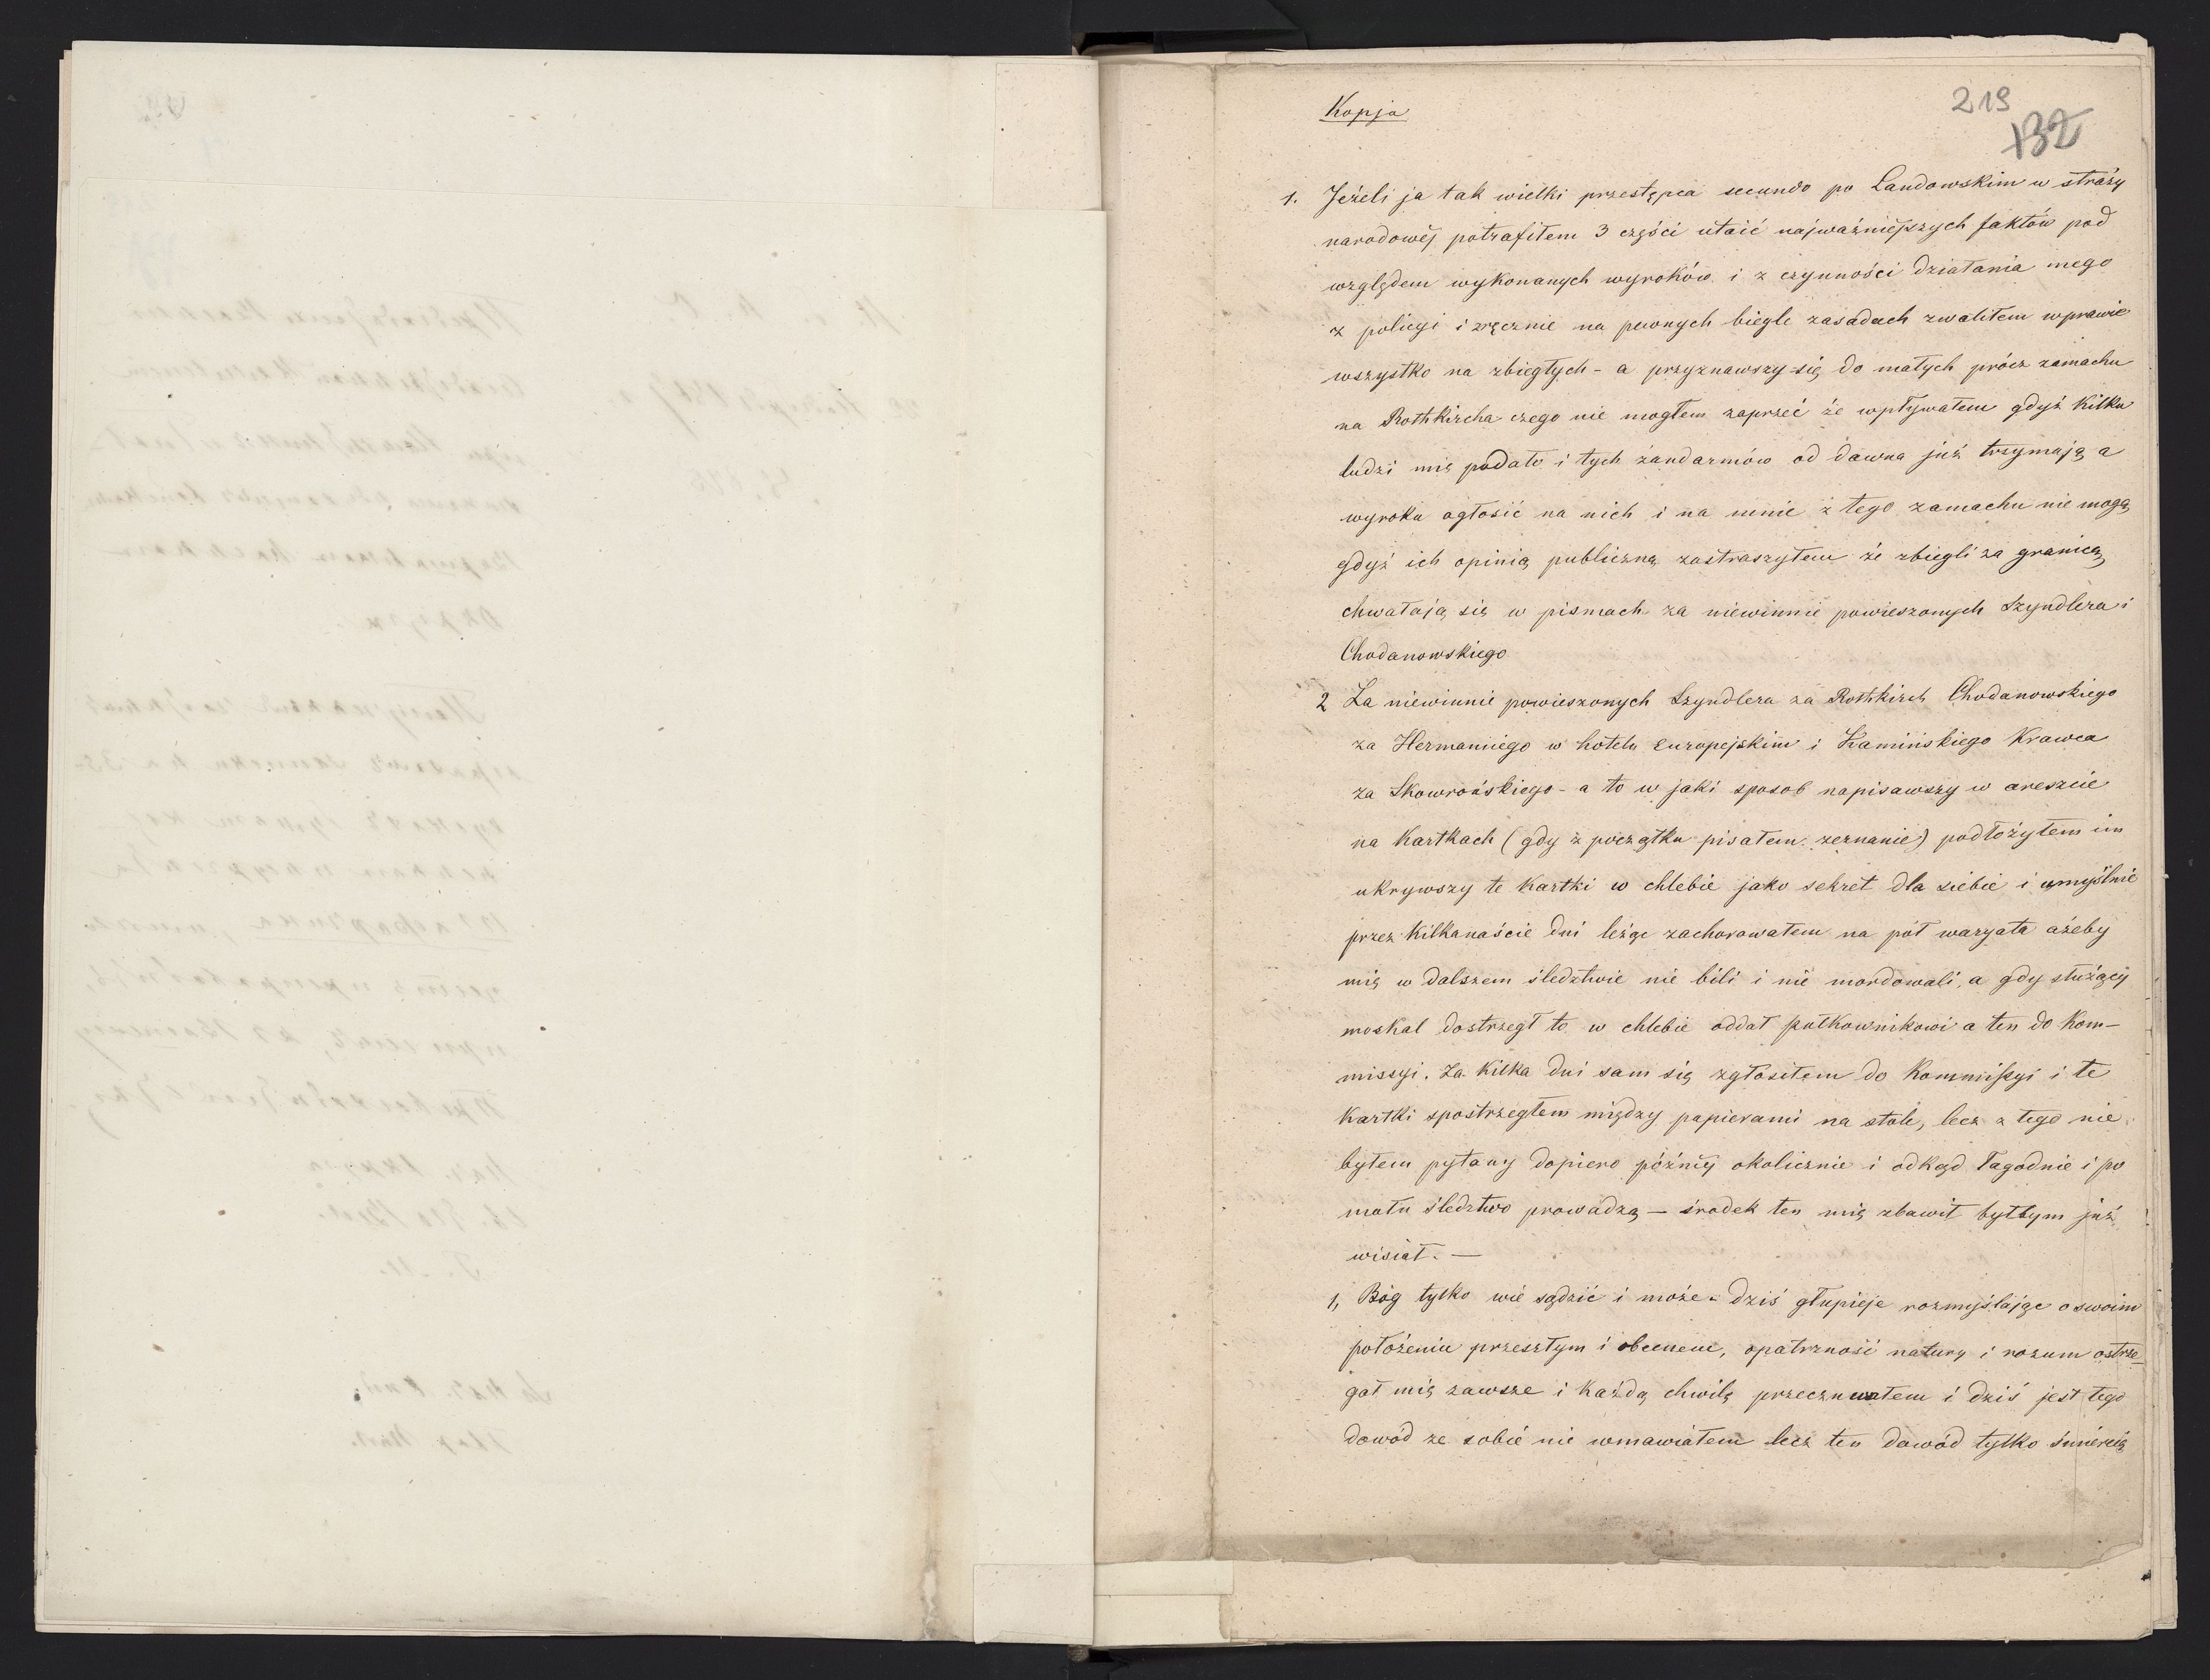 Kopja
219
132
1. Jeżeli ja tak wielki przestępca secundo po Landowskim w straży
narodowéj potrafiłem 3 części utaić najważniejszych faktów pod
względem wykonanych wyroków i z czynności działania mego
z policyi i zręcznie na pewnych biegle zasadach zwaliłem wprawie
wszystko na zbiegłych - a przyznawszy się do małych prócz zamachu
na Rothkircha czego nie mogłem zaprzeć że wpływałem gdyż kilku
ludzi mię podało i tych żandarmów od dawna już trzymają a
wyroku ogłosić na nich i na mnie z tego zamachu nie mogą
gdyż ich opinią publiczną zastraszyłem że zbiegli za granicę,
chwałają się w pismach za niewinnie powieszonych Szyndlera i
Chodanowskiego
2 Za niewinnie powieszonych Szyndlera za Rothkirch Chodanowskiego
za Hermaniego w hotelu Europejskim i Kamińskiego Krawca
za Skowrońskiego - a to w jaki sposob napisawszy w areszcie
na kartkach (gdy z początku pisałem zeznanie) podłożyłem im
ukrywszy te kartki w chlebie jako sekret dla siebie i umyślnie
przez kilkanaście dni leżąc zachorowałem na pół waryata ażeby
mię w dalszem śledztwie nie bili i nie mordowali, a gdy służący
moskal dostrzegł to w chlebie oddał pułkownikowi a ten do Kom-
missyi. Za kilka dni sam się zgłosiłem do Kommissyi i te
Kartki spostrzegłem między papierami na stole, lecz z tego nie
byłem pytany dopiero późniéj okolicznie i odkąd łagodnie i po
mału śledztwo prowadzą — środek ten mię zbawił byłbym już
wisiał. —
1, Bóg tylko wie sądzić i może - dziś głupieje rozmyślając o swoim
położeniu przeszłym i obecnem, opatrzność natury i rozum ostrze-
gał mię zawsze i każdą chwilę przeczuwałem i dziś jest tego
dowód że sobie nie wmawiałem lecz ten dowód tylko śmiercią